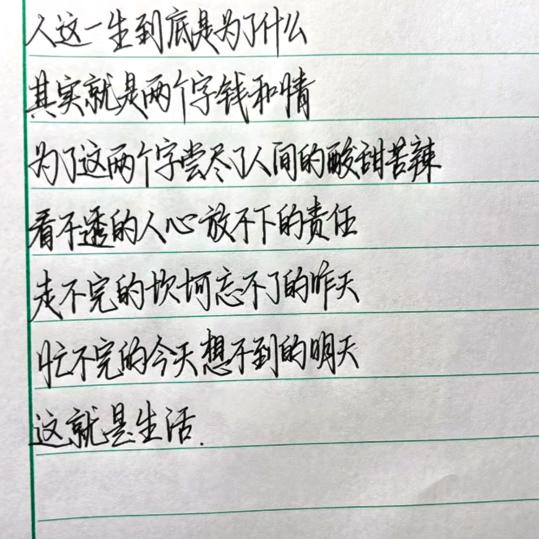 人这一生到底是为了什么
其实就是两个字钱和情
为了这两个字尝尽了人间的酸甜苦辣
看不透的人心放不下的责任
走不完的坎坷忘不了的昨天
忙不完的今天想不到的明天
这就是生活.